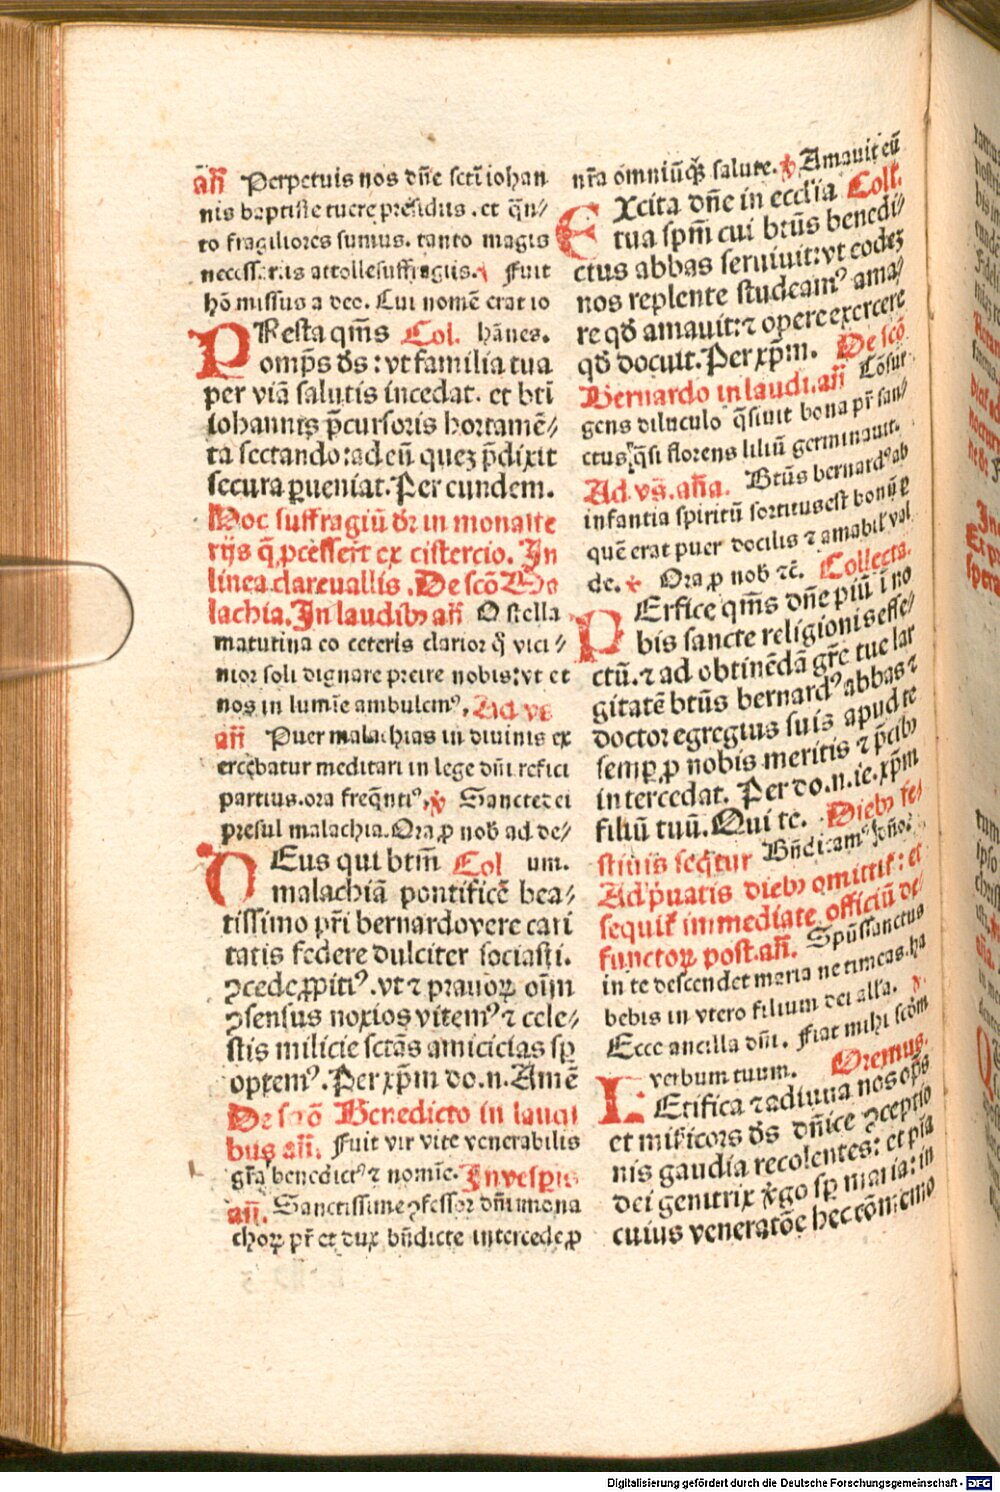 añ Perpetuis nos dñe scti iohan
nis baptiste tuere presidiis .et q̃n⸗
to fragiliores sumus. tanto magis
necessariis attolle suffragiis. Fuit
hõ missus a deo. Cui nomẽ erat io
PResta qm̃s Col. hãnes.
omp̃s ds̃: vt familia tua
per viã salutis incedat. et bti
iohannis p̃cursoris hortamẽ⸗
ta sectando: ad eũ quez p̃dixit
secura ꝑueniat. Per eundem.
Hoc suffragiũ dr̃ in monaste
rijs q̃ ꝓcesseřt ex cistercio. In
linea clareuallis. De scõ Ma
lachia. In laudibꝰ añ O stella
matutina eo ceteris clarior q̃ vici⸗
nior soli dignare preire nobis: vt et
nos in lumĩe ambulemꝰ. Ad vs̃
añ Puer malachias in diuinis ex
ercebatur meditari in lege dñi refici
partius. ora freq̃ntiꝰ. ℣ Sancte dei
presul malachia. Ora ꝓ nob ad de⸗
DEus qui btm̃ Col um.
malachiã pontificẽ bea⸗
tissimo pr̃i bernardo vere cari
tatis federe dulciter sociasti.
ꝯcede ꝓpitiꝰ. vt ⁊ prauoꝝ oĩm
ꝯsensus noxios vitemꝰ ⁊ cele⸗
stis milicie sctãs amicicias sꝑ
optemꝰ. Per xp̃m do. n. Amẽ
De scõ Benedicto in laudi
bus añ. Fuit vir vite venerabilis
gr̃a benedictꝰ ⁊ nomĩe. In vesperis
añ. Sanctissime ꝯfessor dñi mona
choꝝ pr̃ et dux bñdicte intercede ꝓ
nr̃a omniũqꝫ salute. ℣ Amauit eũ
EXcita dñe in ecclia Coll.
tua spm̃ cui btũs benedi⸗
ctus abbas seruiuit: vt eodez
nos replente studeamꝰ ama⸗
re qđ amauit: ⁊ opere exercere
qđ docuit. Per xp̃m. De scõ
Bernardo in laudi. añ Cõsur
gens diluculo q̃siuit bona pr̃ san⸗
ctus, q̃si florens liliũ germinauit.
Ad vs̃. aña. Btũs bernardꝰ ab
infantia spiritũ sortitus est bonũ ꝙ
quẽ erat puer docilis ⁊ amabil' val
de. ℣ Ora ꝓ nob ⁊c̃. Collecta.
PErfice qm̃s dñe piũ ĩ no
bis sancte religionis effe⸗
ctũ. ⁊ ad obtinẽdã gr̃e tue lar
gitatẽ btũs bernardꝰ abbas ⁊
doctor egregius suis apud te
semꝑ ꝓ nobis meritis ⁊ p̃cibꝰ
intercedat. Per do. n. ie. xp̃m
filiũ tuũ. Qui te. Diebꝰ fe⸗
stiuis seq̃tur Bñdicamꝰ dño:
Ad p̃uatis diebꝰ omittiť: et
sequiť immediate officiũ de⸗
functoꝝ post. añ. Spũssanctus
in te descendet maria ne timeas. ha
bebis in vtero filium dei alla. ℣
Ecce ancilla dñi. Fiat mihi scõm
verbum tuum. Oremus.
LEtifica ⁊ adiuua nos op̃s
et mis̃icors ds̃ dñice ꝯceptio
nis gaudia recolentes: et pia
dei genitrix v̓go sꝑ maria: in
cuius veneratõe hec cõmemo